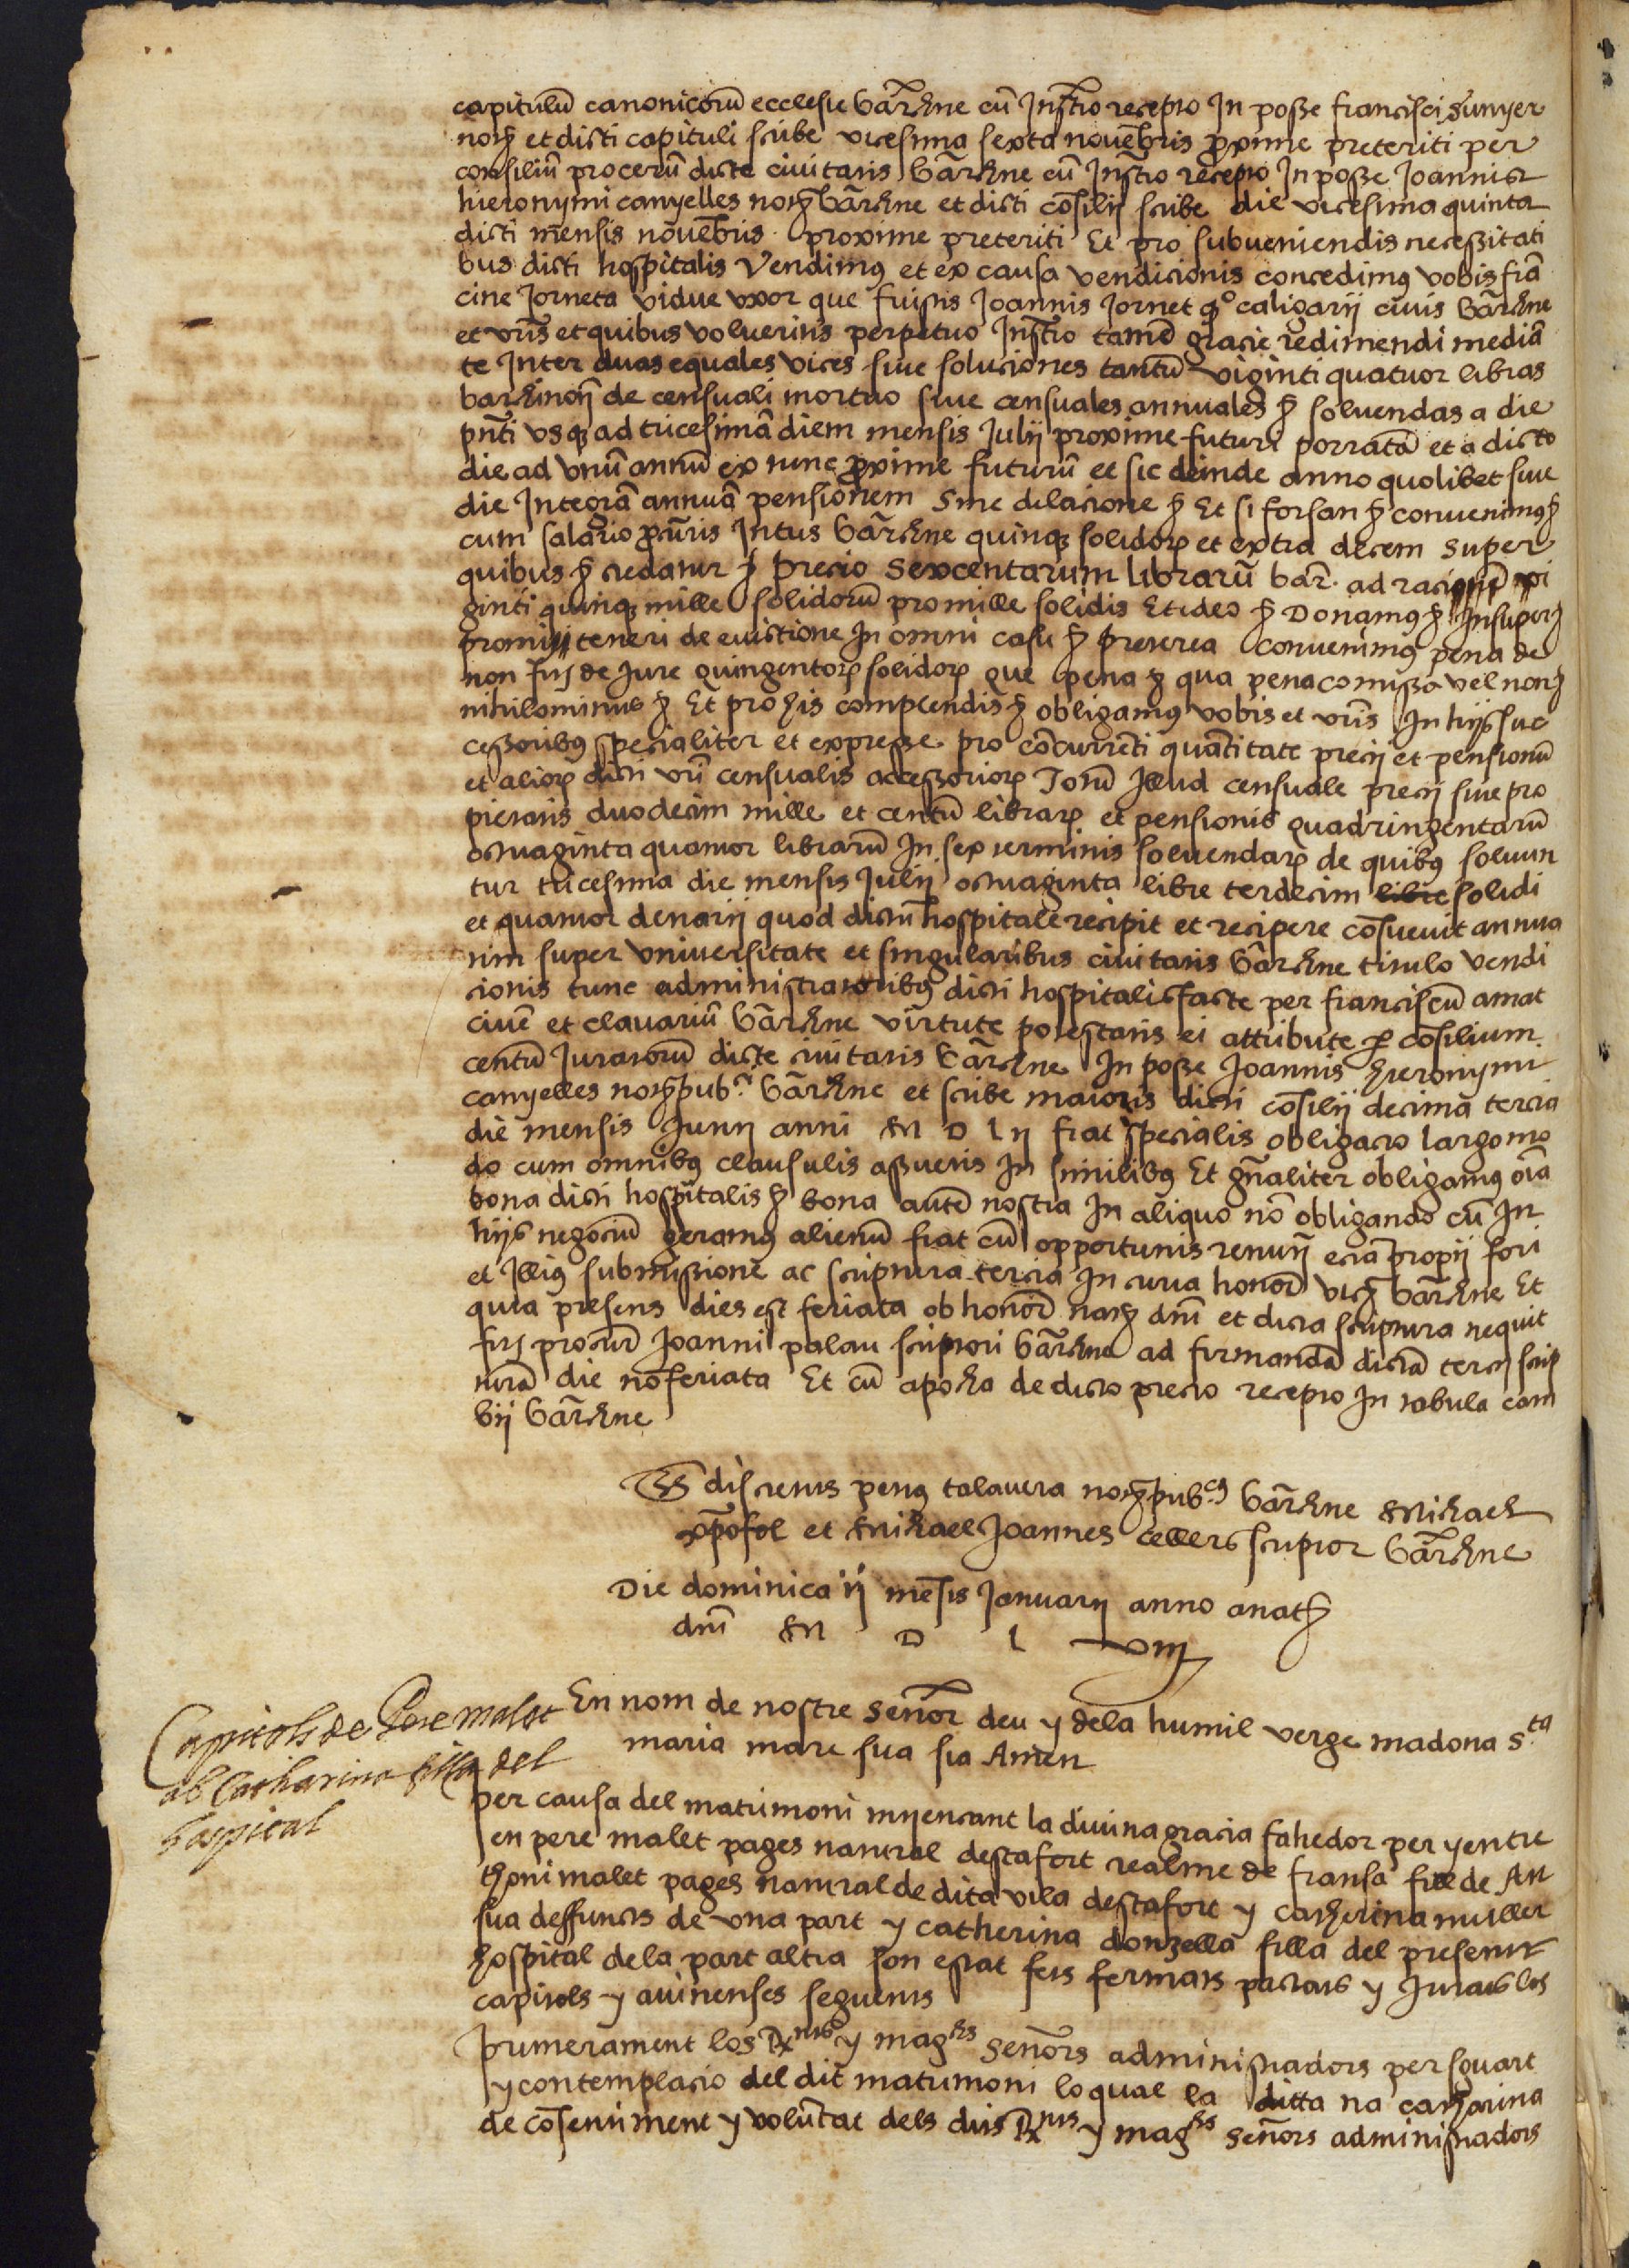 capitulũ canonicorũ ecclesie bar̃chne cũ Instr̃o recepto In posse francisci Sunyer
noȓ et dicti capituli scribe vicesima sexta nouẽbris proxime preteriti per
consiliũ procerũ dicte ciuitatis bar̃chne cũ Instr̃o recepto In posse Joannis
hieronymi canyelles noȓ bar̃chne et dicti cõsilij scribe die vicesima quinta
dicti mensis nouẽbris proxime preteriti Et pro subueniendis necessitati
bus dicti hospitalis Vendimꝰ et ex causa vendicionis concedimꝰ vobis frã
cine Jorneta vidue vxor que fuistis Joannis Jornet qº caligarij ciuis bar̃chne
et vr̃is et quibus volueritis perpetuo Instr̃o tamẽ gracie redimendi mediã
te Inter duas equales vices siue soluciones tantũ viginti quatuor libras
barchinoñ de censuali mortuo siue censuales annuales ⁊ soluendas a die
pñti vsqꝫ ad tricesimã diem mensis Julij proxime futuri porratã et a dicto
die ad vnũ annũ ex tunc proxime futurũ et sic deinde anno quolibet siue
die Integrã annuã pensionem Sine dilacione ⁊ Et si forsan ⁊ conuenimꝰ ⁊
cum salario procur̃is Intus bar̃chne quinqꝫ solidoꝝ et extra decem Super
quibus ⁊ credatur ⁊ Precio Sexcentarum librarũ bar̃. ad racionẽ vi
ginti quinqꝫ mille solidorũ pro mille solidis Et ideo ⁊ Donamꝰ ⁊ Insuper ⁊
promittĩ teneri de euictione In omni casu ⁊ Preterea conuenimꝰ pena de
non firȷ de Jure quingentoꝝ solidoꝝ que pena ⁊ qua pena comissa vel non ⁊
nihilominus ⁊ Et pro his complendis ⁊ obligamꝰ vobis et vr̃is In hijs suc
cessoribꝰ specialiter et expresse pro cõcurrẽti quãtitate precij et pensionũ
et alioꝝ dicti vr̃i censualis accessorioꝝ Totũ Illud censuale precij siue pro
pietatis duodecim mille et centũ libraꝝ et pensionis quadringentarũ
octuaginta quatuor librarũ In sex terminis soluendaꝝ de quibꝰ soluun
tur tricesima die mensis Julij octuaginta libre terdecim libre solidi
et quatuor denarij quod dictũ hospitale recipit et recipere cõsueuit annua
tim super vniuersitate et singularibus ciuitatis bar̃chne titulo vendi
cionis tunc administratoribꝰ dicti hospitalis facte per franciscũ amat
ciuẽ et clauariũ bar̃chne virtute potestatis ei attribute ꝑ cõsilium
centũ Juratorũ dicte ciuitatis bar̃chne In posse Joannis hieronymi
canyelles noȓ pub.ci bar̃chne et scribe maioris dicti cõsilij decima tercia
die mensis Junij anni M D l ij fiat specialis obligacio largo mo
do cum omnibꝰ clausulis assuetis In similibꝰ Et gñaliter obligamꝰ oĩa
bona dicti hospitalis ⁊ bona autẽ nostra In aliquo nõ obligando cũ In
hijs negociũ geramꝰ alienũ fiat cũ opportunis renũȷ eciã propij fori
et Illiꝰ submissione ac scriptura tercia In curia honor̃ vicȓ bar̃chne Et
quia presens dies est feriata ob honorẽ natȓ dñi et dicta scriptura nequit
firȷ procur̃ Joanni palau scriptori bar̃chne ad firmandã dictã tercȷ scrip
turã die nõ feriata Et cũ apocha de dicto precio recepto In tabula cam
bij bar̃chne
T̃s discretus petrꝰ talauera noȓ pub.cꝰ bar̃chne Michael
xp̃ofol et Michael Joannes cellers scriptor bar̃chne
Die dominica ij mẽsis Januarij anno a natȓ
dñi M D l viij
Capitols de Pere malet
ab Catharina filla del
hospital
En nom de nostre Señor deu y dela humil verge madona S.ta
maria mare sua sia Amen
Per causa del matrimoni mijençant la diuina gracia fahedor per y entre
en pere malet pages natural destafort realme de fransa fill de An
thoni malet pages natural de dita vila destafort y catherina muller
sua deffuncts de vna part y catherina donzella filla del present
hospital dela part altra son estat fets fermats pactats y Jurats los
capitols y auinenses seguents
Primerament los Rnts y maghs Señors administradors per sguart
y contemplacio del dit matrimoni lo qual la ditta na catharina
de cõsentiment y volũtat dels dits Rnts y maghs Señors administradors